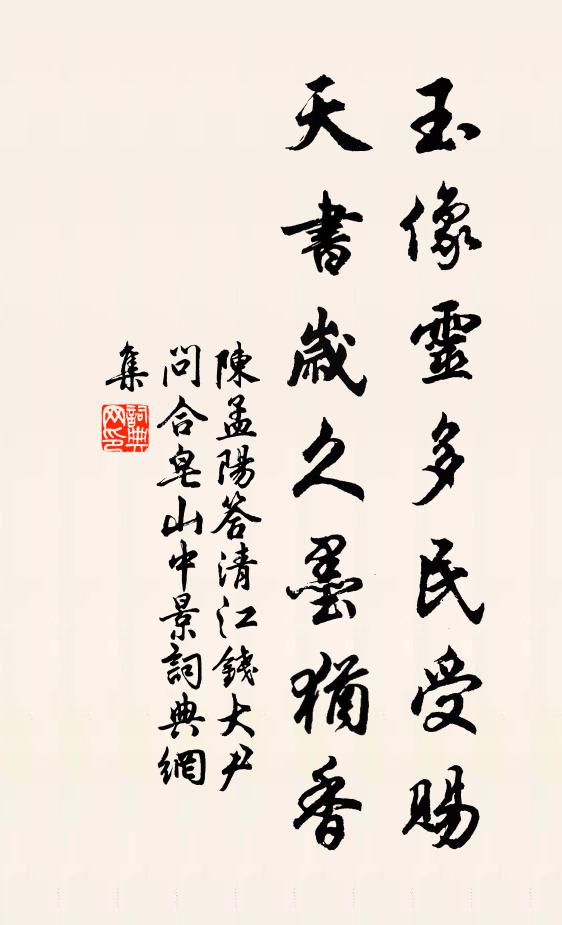 玉像靈多民受賜
天書歲久墨猶香
陳孟陽答清江錢大尹
問合皂山中景詞典網
集
詞典
网印